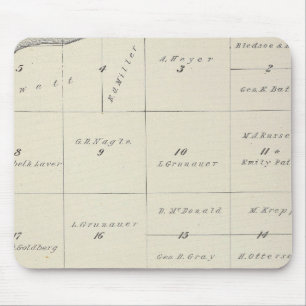 Bledsoe &
A. Heyer
5 4 3 2
watt
Ed. Miller
Geo. K. Bat
G. B. Nagle
M. A. Russe
8 9 10 11 &
beth Laver
L. Grunauer
Emily Pat
L. Grunauer
D. McDonald
M. Kropp
16 15 14
Goldberg
Geo. H. Gray
H. Otterso